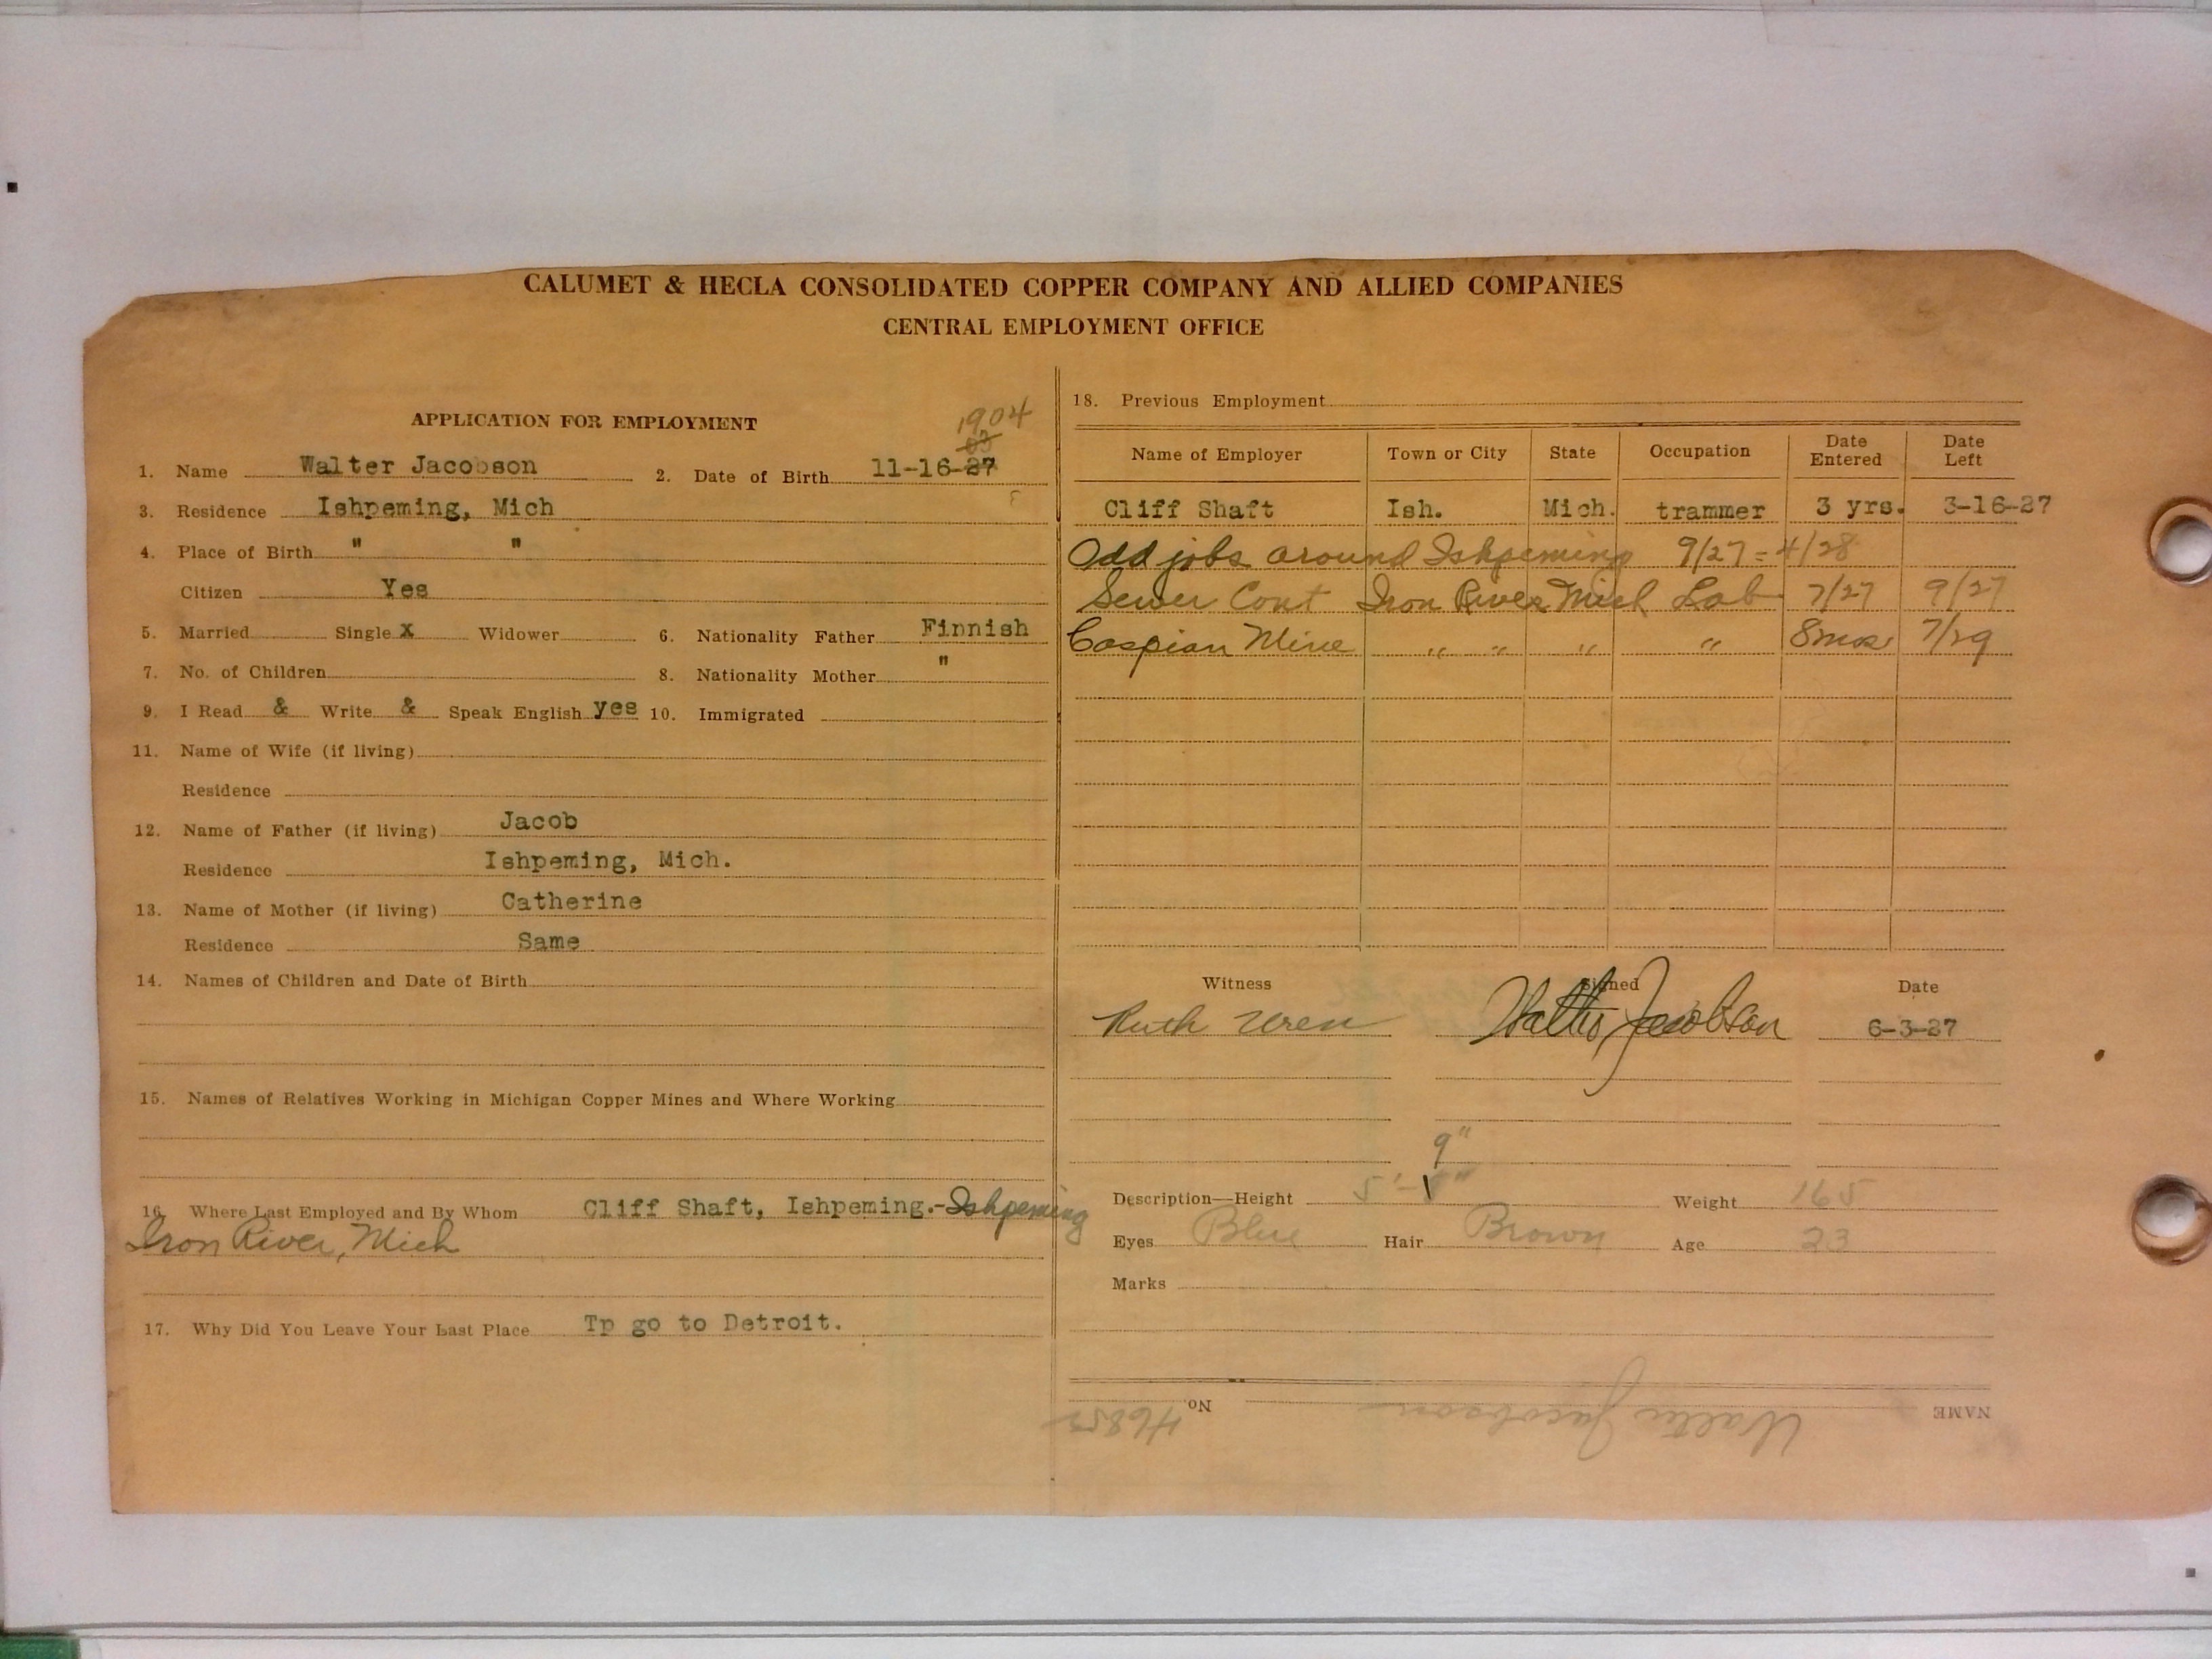 CALUMET & HECLA CONSOLIDATED COPPER COMPANY AND ALLIED COMPANIES
CENTRAL EMPLOYMENT OFFICE
APPLICATION FOR EMPLOYMENT
1904
03
1. Name Walter Jacobson 2. Date of Birth 11-16-27
3. Residence Ishpeming, Mich
4. Place of Birth " "
Citizen Yes
5. Married Single X Widower 6. Nationality Father Finnish
7. No. of Children 8. Nationality Mother "
9. I Read & Write & Speak English yes 10. Immigrated
11. Name of Wife (if living)
Residence
12. Name of Father (if living) Jacob
Residence Ishpeming, Mich.
13. Name of Mother (if living) Catherine
Residence Same
14. Names of Children and Date of Birth
15. Names of Relatives Working in Michigan Copper Mines and Where Working
16. Where Last Employed and By Whom Cliff Shaft, Ishpeming.-Ishpeming
Iron River, Mich
17. Why Did You Leave Your Last Place Tp go to Detroit.
18. Previous Employment
Name of Employer Town or City State Occupation Date Entered Date Left
Cliff Shaft Ish. Mich. trammer 3 yrs. 3-16-27
Odd jobs around Ishpeming 9/27 = 4/28
Sewer Cont Iron River Mich Lab 7/27 9/27
Caspian Mine " " " " 8mos 7/29
Witness Signed Date
Ruth Uren Walter Jacobson 6-3-27
9"
Description—Height 5'- " Weight 165
Eyes Blue Hair Brown Age 23
Marks
NAME Walter Jacobson No.